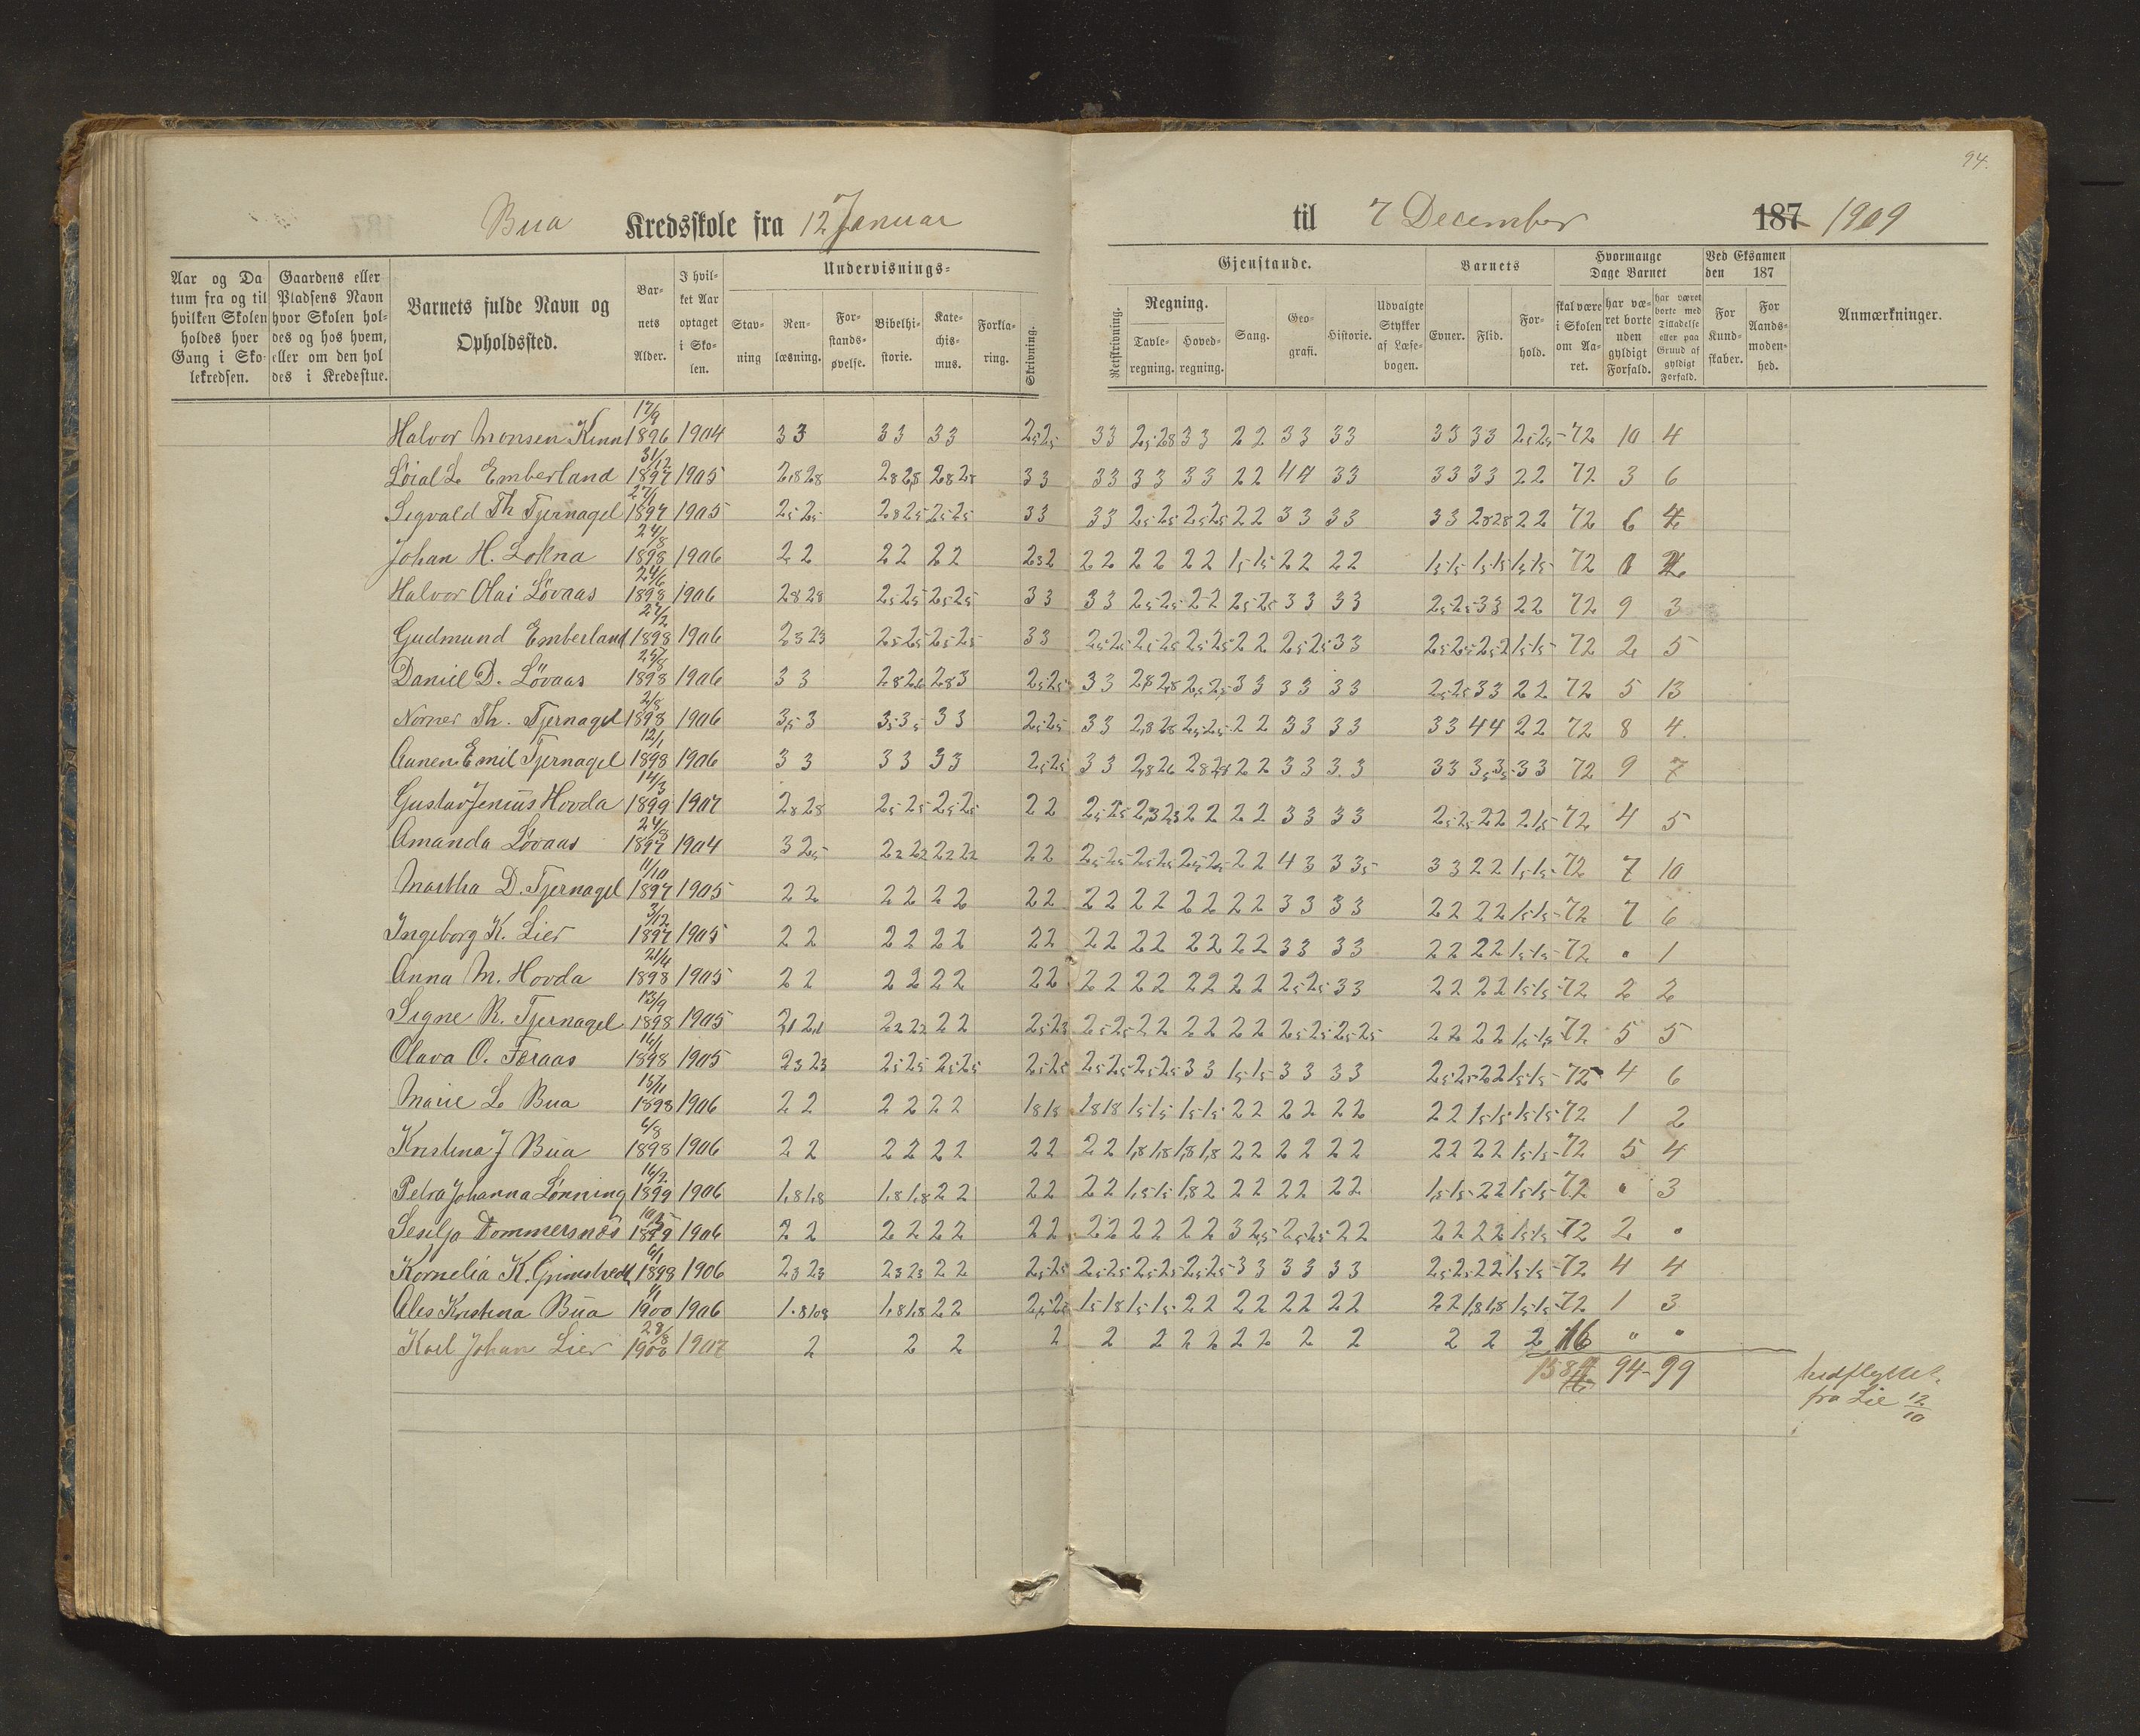 94.
Bua Kredsskole fra 12 Januar til 7 December 187 1909
Aar og Datum fra og til hvilken Skolen holdes hver Gang i Skolekredsen.
Gaardens eller Pladsens Navn hvor Skolen holdes og hos hvem, eller om den holdes i Kredsstue.
Barnets fulde Navn og Opholdssted.
Barnets Alder.
I hvilket Aar optaget i Skolen.
Undervisnings- Gjenstande.
Stavning
Renlæsning.
Forstandsøvelse.
Bibelhistorie.
Katechismus.
Forklaring.
Skrivning.
Retskrivning.
Regning.
Tavleregning.
Hovedregning.
Sang.
Geografi.
Historie.
Udvalgte Stykker af Læsebogen.
Barnets
Evner.
Flid.
Forhold.
Hvormange Dage Barnet
skal være i Skolen om Aaret.
har været borte uden gyldigt Forfald.
har været borte med Tilladelse eller paa Grund af gyldigt Forfald.
Ved Eksamen den 187
For Kundskaber.
For Aandsmodenhed.
Anmærkninger.
Halvor Monsen Kinn 17/9 1896 1904 3 3 3 3 3 3 2,5 2,5 3 3 2,5 2,8 3 3 2 2 3 3 3 3 3 3 3 3 2,5 2,5 72 10 4
Loial L Emberland 31/12 1897 1905 2,8 2,8 2,8 2,8 2,8 2,8 3 3 3 3 3 3 3 3 2 2 4 4 3 3 3 3 3 3 2 2 72 3 6
Sigvald Th Tjernagel 27/1 1897 1905 2,5 2,5 2,8 2,5 2,5 2,5 3 3 3 3 2,5 2,5 2,5 2,5 2 2 3 3 3 3 3 3 2,8 2,8 2 2 72 6 4
Johan H. Lokna 24/8 1898 1906 2 2 2 2 2 2 2,3 2 2 2 2 2 2 2 1,5 1,5 2 2 2 2 1,5 1,5 1,5 1,5 1,5 1,5 72
Halvor Olai Lövaas 24/6 1898 1906 2,8 2,8 2,5 2,5 2,5 2,5 3 3 3 3 2,5 2,5 2 2 2,5 2,5 3 3 3 3 2,5 2,5 3 3 2 2 72 9 3
Gudmund Emberland 27/2 1898 1906 2,3 2,3 2,5 2,5 2,5 2,5 3 3 2,5 2,5 2,5 2,5 2,5 2,5 2 2 2,5 2,5 3 3 2,5 2,5 2,5 2 1,5 1,5 72 2 5
Daniel D. Lövaas 25/8 1898 1906 3 3 2,8 2,6 2,8 3 2,5 2,5 3 3 2,8 2,8 2,5 2,5 3 3 3 3 3 3 2,5 2,5 3 3 2 2 72 5 13
Norner Th. Tjernagel 2/8 1898 1906 3,5 3 3,5 3,5 3 3 2,5 2,5 3 3 2,8 2,8 2,5 2,5 2 2 3 3 3 3 3 3 4 4 2 2 72 8 4.
Aanen Emil Tjernagel 12/1 1898 1906 3 3 3 3 3 3 2,5 2,5 3 3 2,8 2,6 2,8 2,8 2 2 3 3 3 3 3 3 3,5 3,5 3 3 72 9 7
Gustav Jenius Hovda 14/3 1899 1907 2,8 2,8 2,5 2,5 2,5 2,5 2 2 2,5 2,5 2,3 2,3 2 2 2 2 3 3 3 3 2,5 2,5 2 2 2 1,5 72 4 5
Amanda Lövaas 24/8 1897 1904 3 2,5 2,2 2,2 2,2 2,2 2 2 2,5 2,5 2,5 2,5 2,5 2,5 2 2 4 3 3 3,5 3 3 2 2 1,5 1,5 72 7 10
Martha D. Tjernagel 11/10 1897 1905 2 2 2 2 2 2 2 2 2 2 2 2 2 2 2 2 3 3 3 3 2 2 2 2 1,5 1,5 72 7 6
Ingeborg K. Lier 3/12 1897 1905 2 2 2 2 2 2 2 2 2 2 2 2 2 2 2 2 3 3 3 3 2 2 2 2 1,5 1,5 72 " 1
Anna M. Hovda 21/4 1898 1905 2 2 2 2 2 2 2 2 2 2 2 2 2 2 2 2 2,5 2,5 3 3 2 2 2 2 1,5 1,5 72 2 2
Signe R. Tjernagel 13/9 1898 1905 2,1 2,1 2,2 2,2 2 2 2,5 2,3 2,5 2,5 2 2 2 2 2 2 2,5 2,5 2,5 2,5 2 2 2 2 1,5 1,5 72 5 5
Olava O. Færaas 16/1 1898 1905 2,3 2,3 2,5 2,5 2,5 2,5 2,5 2,5 2,5 2,5 2,5 2,5 3 3 1,5 1,5 3 3 3 3 2,5 2,5 2 2 1,5 1,5 72 4 6
Marie L Bua 15/11 1898 1906 2 2 2 2 2 2 1,8 1,8 1,8 1,8 1,5 1,5 1,5 1,5 2 2 2 2 2 2 2 2 1,5 1,5 1,5 1,5 72 1 2
Kristina J Bua 6/8 1898 1906 2 2 2 2 2 2 2 2 2 2 1,8 1,8 1,8 1,8 2 2 2 2 2 2 2 2 2 2 1,5 1,5 72 5 4
Petra Johanna Lønning 16/2 1899 1906 1,8 1,8 1,8 1,8 2 2 2 2 2 2 1,5 1,5 1,8 2 2 2 2 2 2 2 1,5 1,5 2 2 1,5 1,5 72 " 3
Sesilja Tommersnæs 10/5 1899 1906 2 2 2 2 2 2 2 2 2 2 2 2 2 2 3 2,5 2,5 2,5 2 2 2 2 2 2 1,5 1,5 72 2 "
Kornelia K. Grimstvedt 6/1 1898 1906 2,3 2,3 2,3 2,3 2 2 2,5 2,5 2,5 2,5 2,5 2,5 2,5 2,5 3 3 3 3 3 3 2,5 2,5 2 2 1,5 1,5 72 4 4
Ales Kristena Bua 1900 1906 1,8 1,8 1,8 1,8 2 2 2,5 2,5 1,5 1,8 1,5 1,5 2 2 2 2 2 2 2 2 2 2 1,8 1,8 1,5 1,5 72 1 3
Karl Johan Lier 28/8 1900 1907 2 2 2 2 2 2 2 2 2 2 2 2 2 2 2 2 16 " "
94 - 99
hidflyttet
fra Lie 12/10